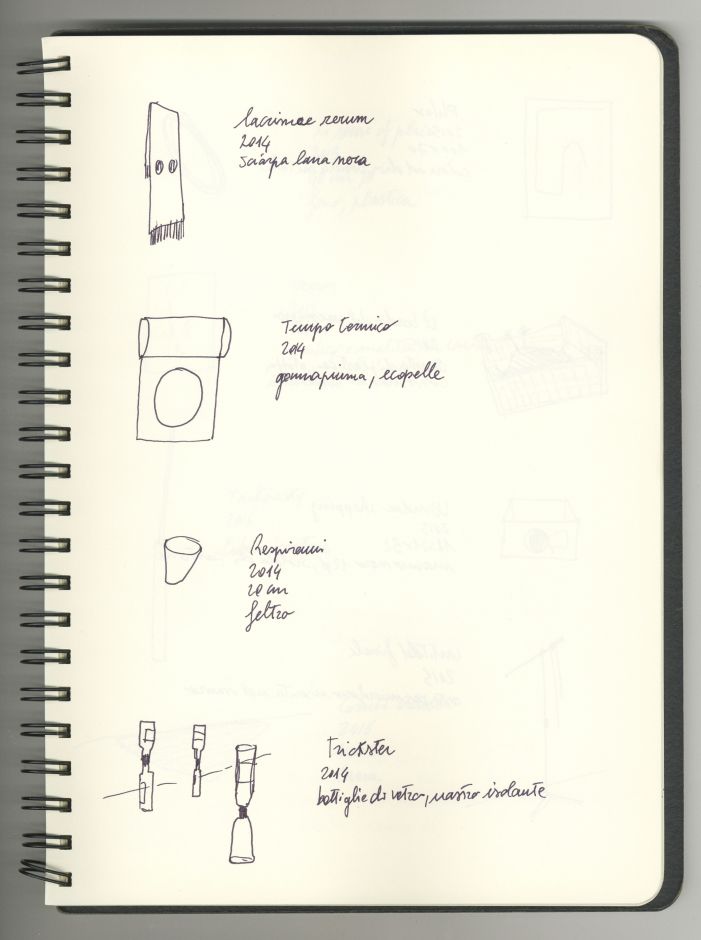 lacrimae rerum
2014
sciarpa lana nera
Tempo termico
2014
gommapiuma, ecopelle
Respirami
2014
20 cm
feltro
Trickster
2014
bottiglie di vetro, nastro isolante